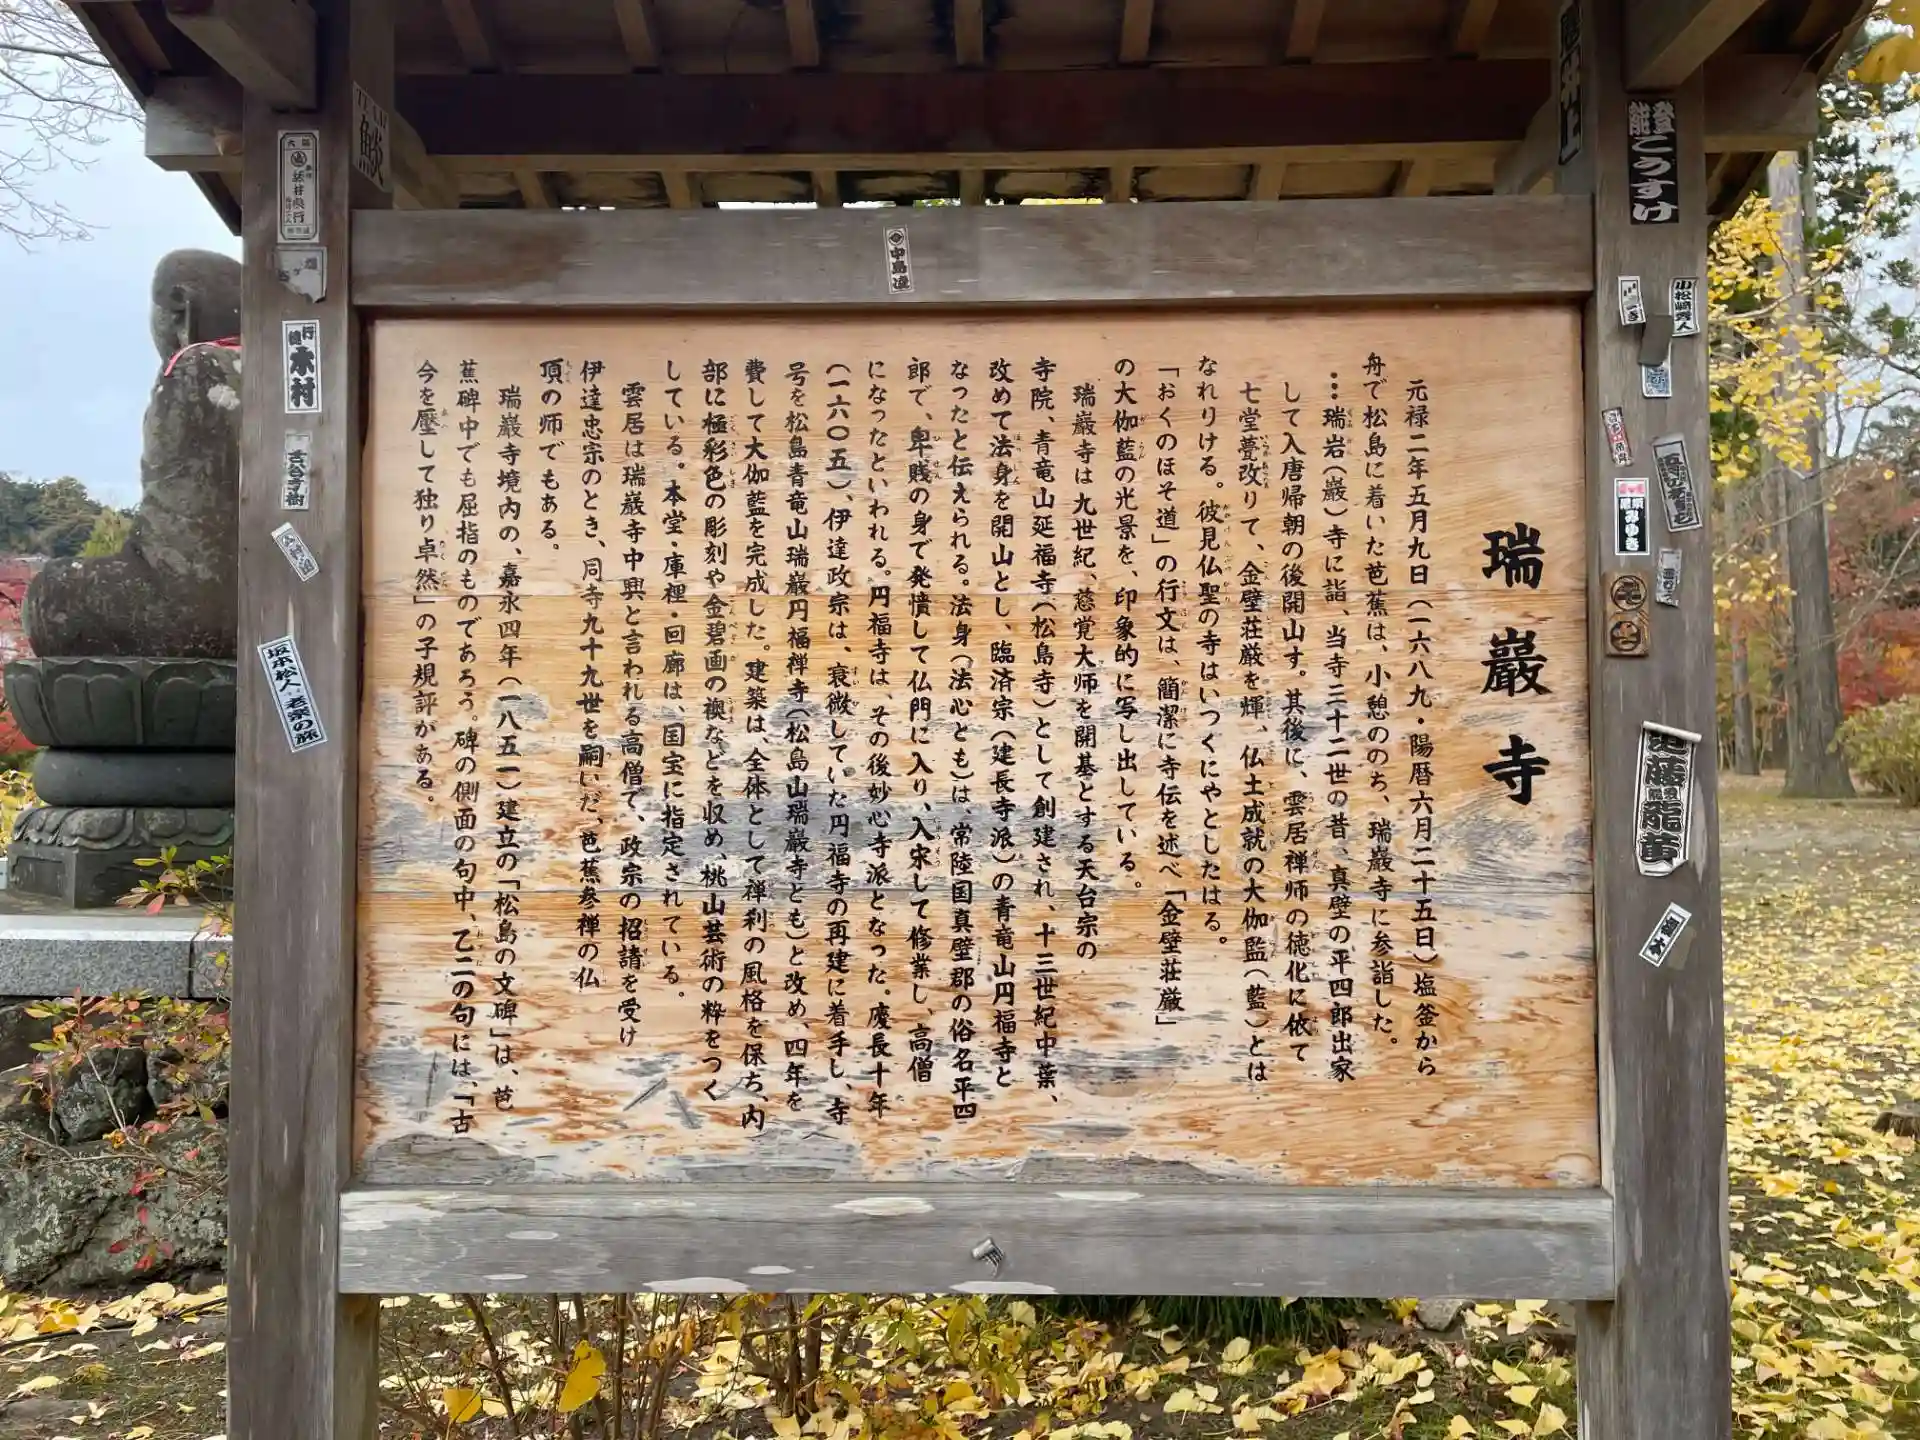 瑞巖寺
元禄二年五月九日(一六八九・陽暦六月二十五日)塩釜から
舟で松島に着いた芭蕉は、小憩ののち、瑞巖寺に参詣した。
…瑞岩(巖)寺に詣、当寺三十二世の昔、真壁の平四郎出家
して入唐帰朝の後開山す。其後に、雲居禅師の徳化に依て
七堂甍改りて、金壁荘厳を輝、仏土成就の大伽監(藍)とは
なれりける。彼見仏聖の寺はいつくにやとしたはる。
「おくのほそ道」の行文は、簡潔に寺伝を述べ「金壁荘厳」
の大伽藍の光景を、印象的に写し出している。
瑞巖寺は九世紀、慈覚大師を開基とする天台宗の
寺院、青竜山延福寺(松島寺)として創建され、十三世紀中葉、
改めて法身を開山とし、臨済宗(建長寺派)の青竜山円福寺と
なったと伝えられる。法身(法心とも)は、常陸国真壁郡の俗名平四
郎で、卑賎の身で発憤して仏門に入り、入宋して修業し、高僧
になったといわれる。円福寺は、その後妙心寺派となった。慶長十年
(一六〇五)、伊達政宗は、衰微していた円福寺の再建に着手し、寺
号を松島青竜山瑞巖円福禅寺(松島山瑞巖寺とも)と改め、四年を
費して大伽藍を完成した。建築は、全体として禅刹の風格を保ち、内
部に極彩色の彫刻や金碧画の襖などを収め、桃山芸術の粋をつく
している。本堂・庫裡・回廊は、国宝に指定されている。
雲居は瑞巖寺中興と言われる高僧で、政宗の招請を受け
伊達忠宗のとき、同寺九十九世を嗣いだ、芭蕉参禅の仏
頂の師でもある。
瑞巖寺境内の、嘉永四年(一八五一)建立の「松島の文碑」は、芭
蕉碑中でも屈指のものであろう。碑の側面の句中、乙二の句には、「古
今を壓して独り卓然」の子規評がある。
中島
井上
能登
こうすけ
小松崎秀人
みゆき
木村
古谷秀樹
坂本松人 老楽の旅